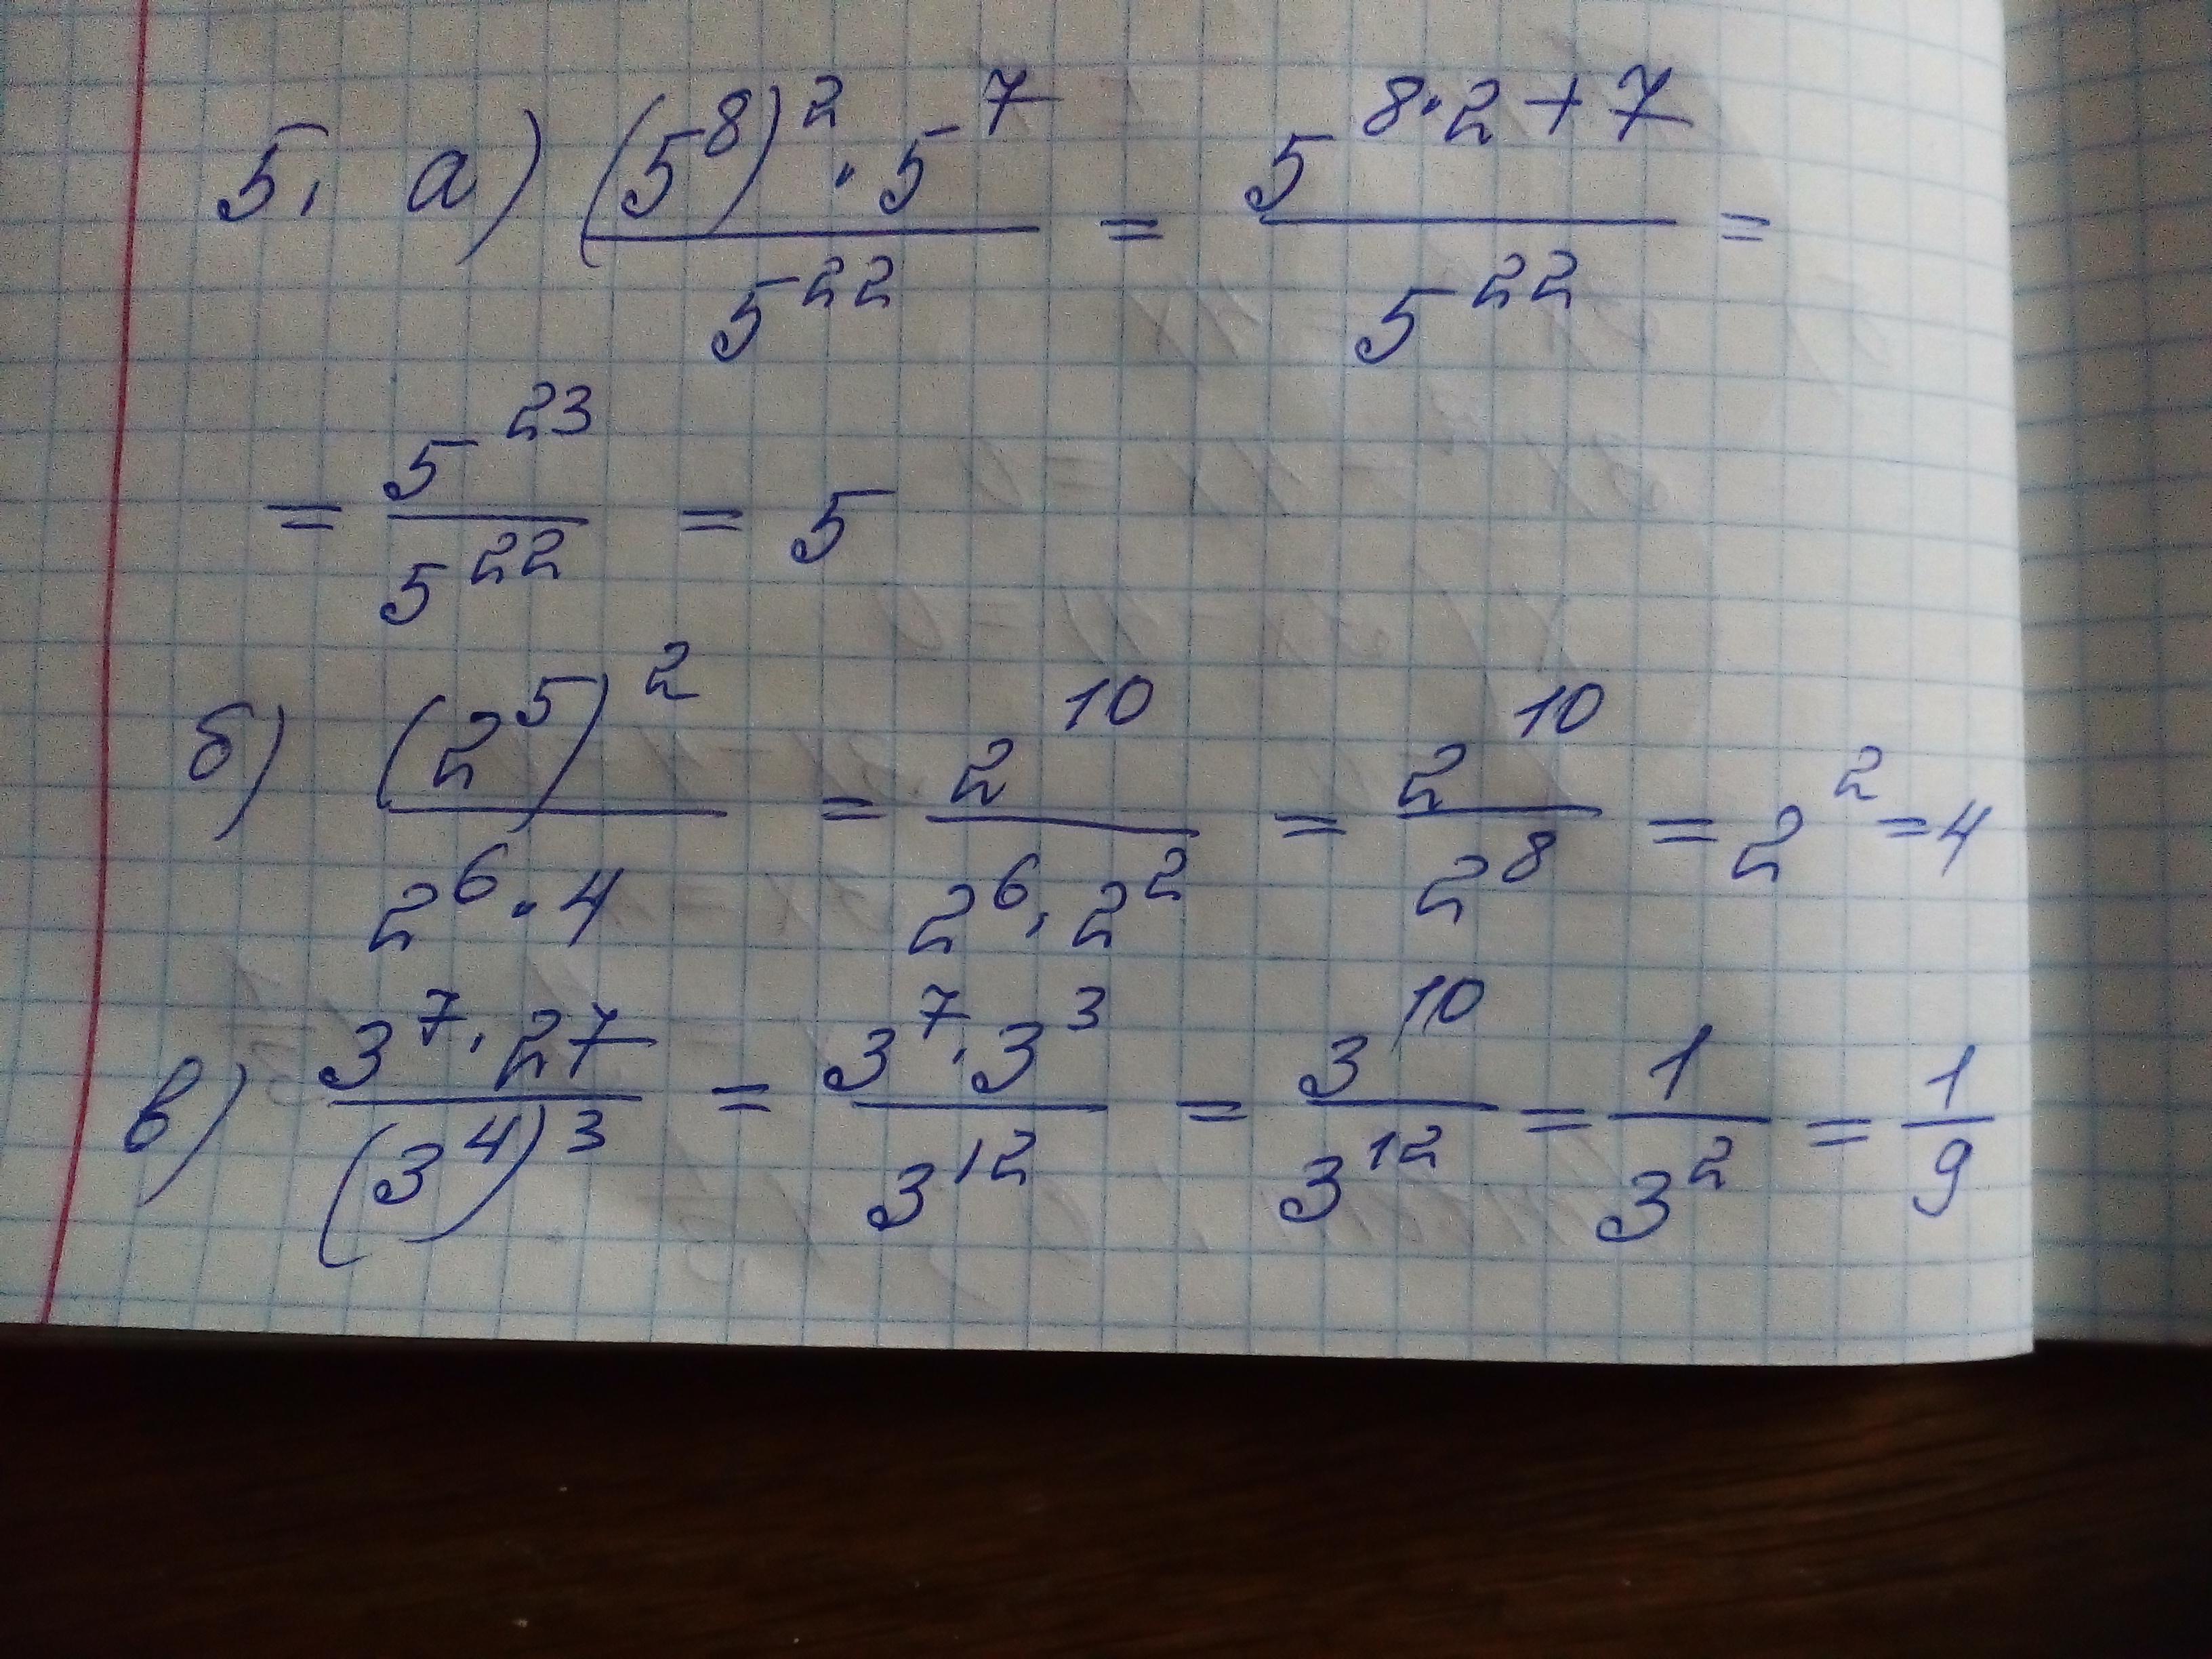 5. а) (5^8)^2 · 5^7 / 5^22 = 5^(8·2+7) / 5^22 =
= 5^23 / 5^22 = 5
б) (2^5)^2 / 2^6 · 4 = 2^10 / 2^6 · 2^2 = 2^10 / 2^8 = 2^2 = 4
в) 3^7 · 27 / (3^4)^3 = 3^7 · 3^3 / 3^12 = 3^10 / 3^12 = 1 / 3^2 = 1 / 9